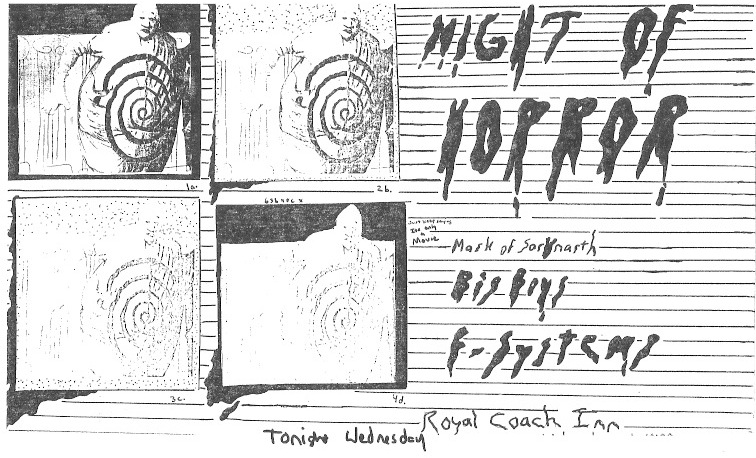 NIGHT OF
HORROR
1a.
2b.
3c.
4d.
Just keep saying
Its only
a
Movie
Mask of Sarnarth
Big Boys
F-Systems
Royal Coach Inn
Tonight Wednesday